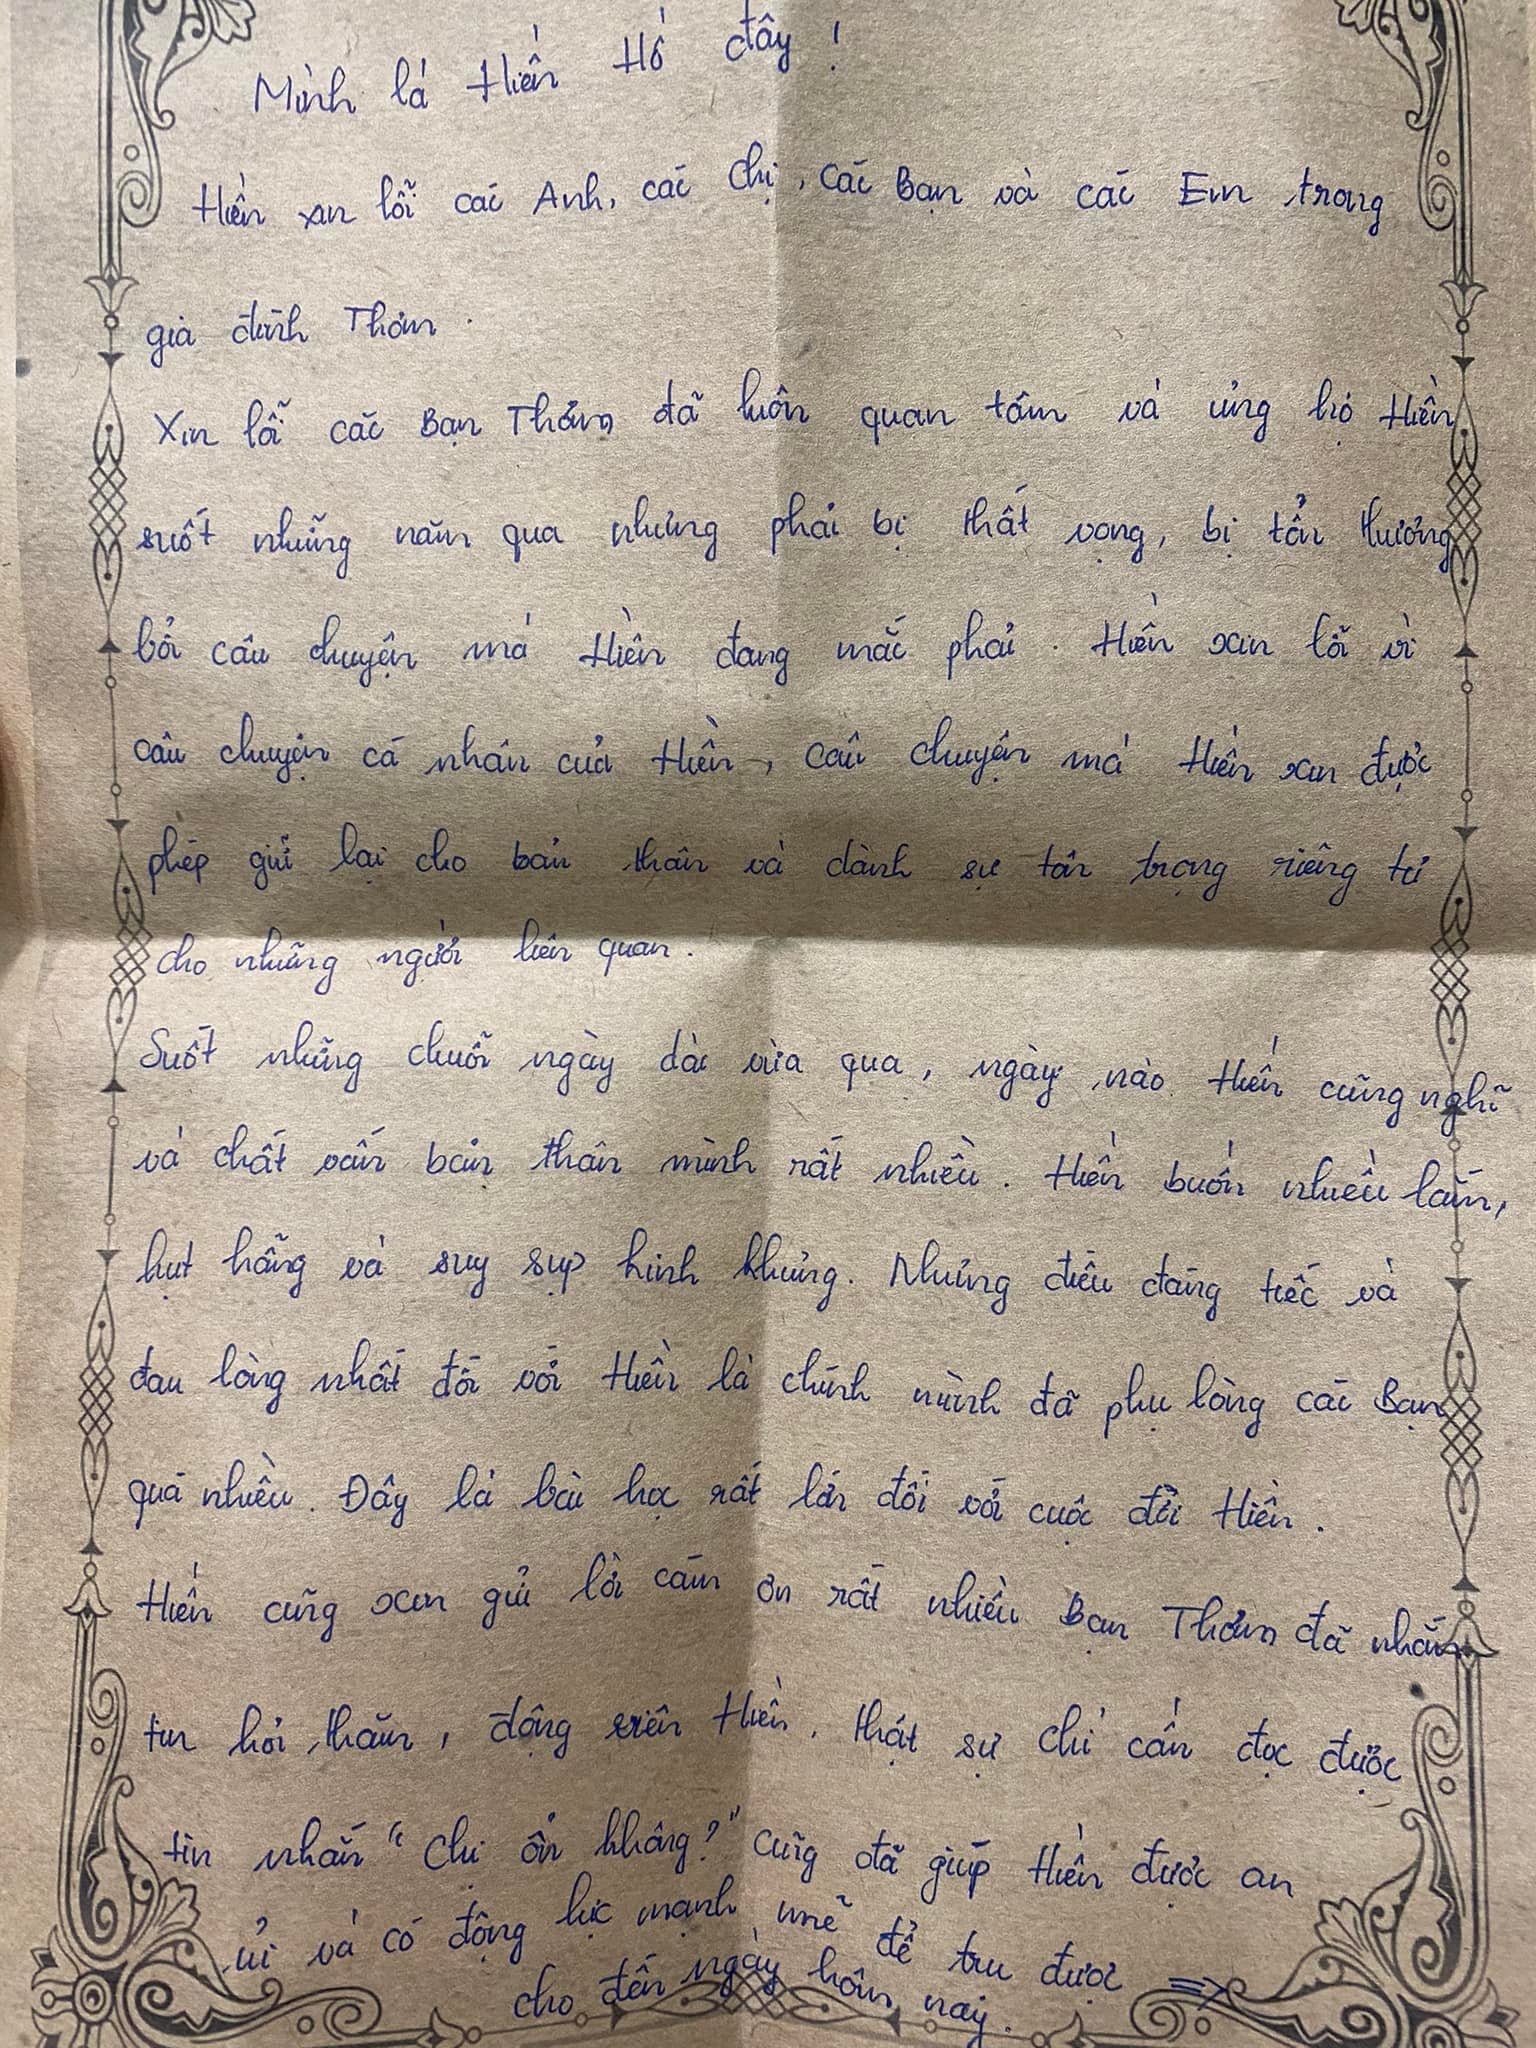 Mình là Hiền Hồ đây !
Hiền xin lỗi các Anh, các chị, các Bạn và các Em trong
gia đình Thơm.
Xin lỗi các Bạn Thơm đã luôn quan tâm và ủng hộ Hiền
suốt những năm qua nhưng phải bị thất vọng, bị tổn thương
bởi câu chuyện mà Hiền đang mắc phải. Hiền xin lỗi vì
câu chuyện cá nhân của Hiền, câu chuyện mà Hiền xin được
phép giữ lại cho bản thân và dành sự tôn trọng riêng tư
cho những người liên quan.
Suốt những chuỗi ngày dài vừa qua, ngày nào Hiền cũng nghĩ
và chất vấn bản thân mình rất nhiều. Hiền buồn nhiều lắm,
hụt hẫng và suy sụp kinh khủng. Nhưng điều đáng tiếc và
đau lòng nhất đối với Hiền là chính mình đã phụ lòng các Bạn
quá nhiều. Đây là bài học rất lớn đối với cuộc đời Hiền.
Hiền cũng xin gửi lời cảm ơn rất nhiều Bạn Thơm đã nhắn
tin hỏi thăm, động viên Hiền. Thật sự chỉ cần đọc được
tin nhắn "Chị ổn không?" cũng đã giúp Hiền được an
ủi và có động lực mạnh mẽ để trụ được =>
cho đến ngày hôm nay.